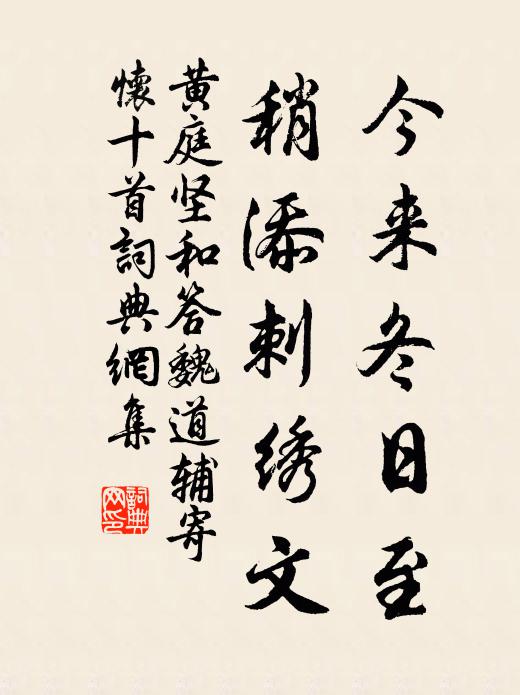 今来冬日至
稍添刺绣文
黄庭坚和答魏道辅寄
怀十首詞典網集
詞典网印